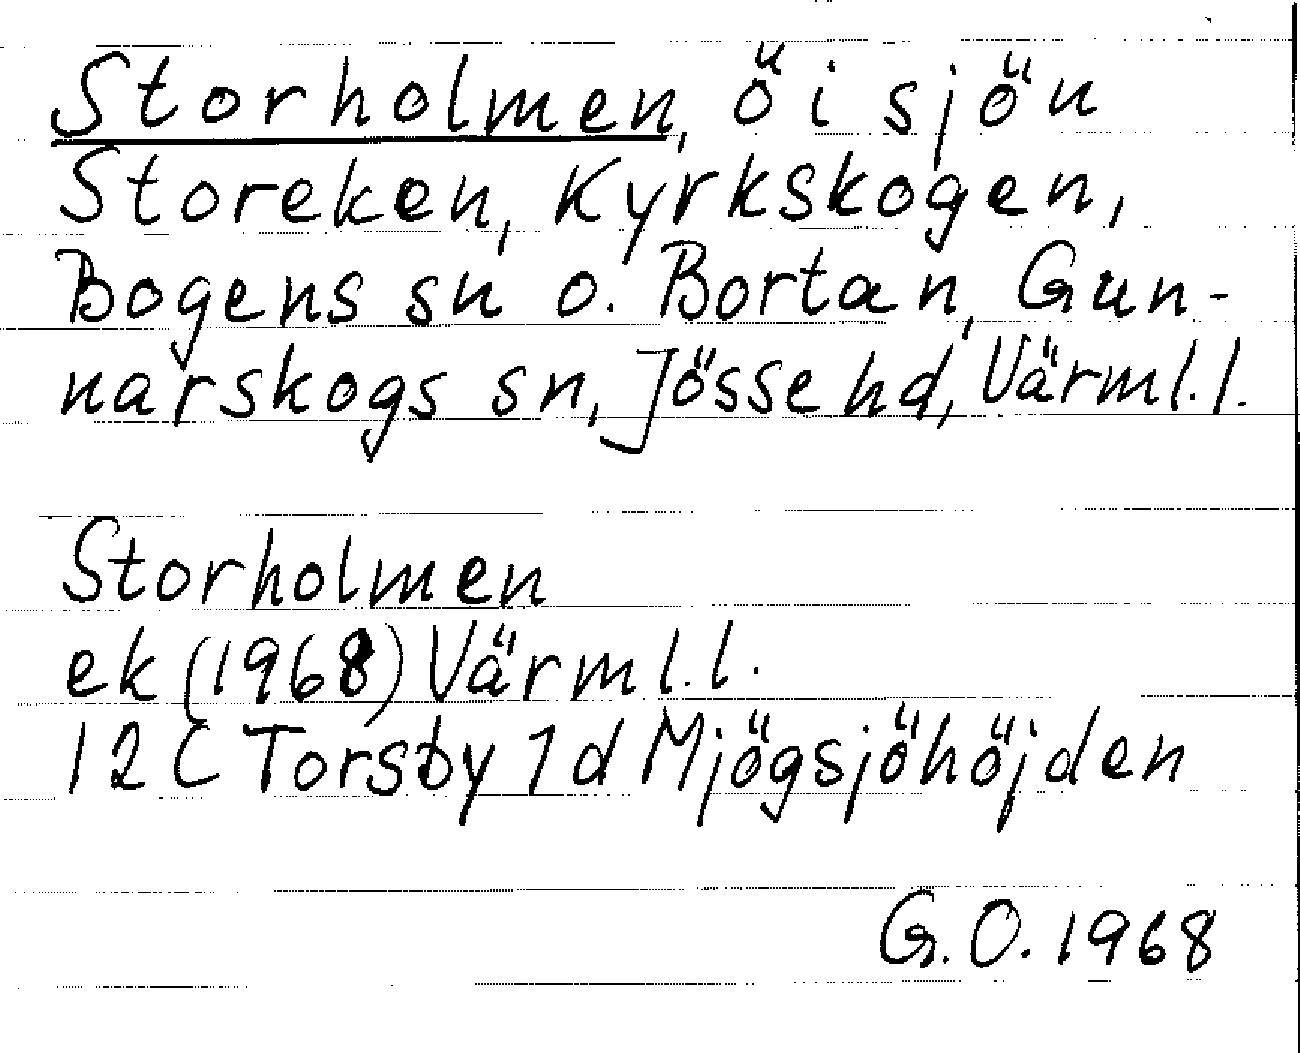 Storholmen, ö i sjön
Storeken, Kyrkskogen,
Bogens sn o. Bortan, Gun-
narskogs sn, Jösse hd, Värml. l.
Storholmen
ek (1968) Värml. l.
12 C Torsby 1 d Mjögsjöhöjden
G. O. 1968